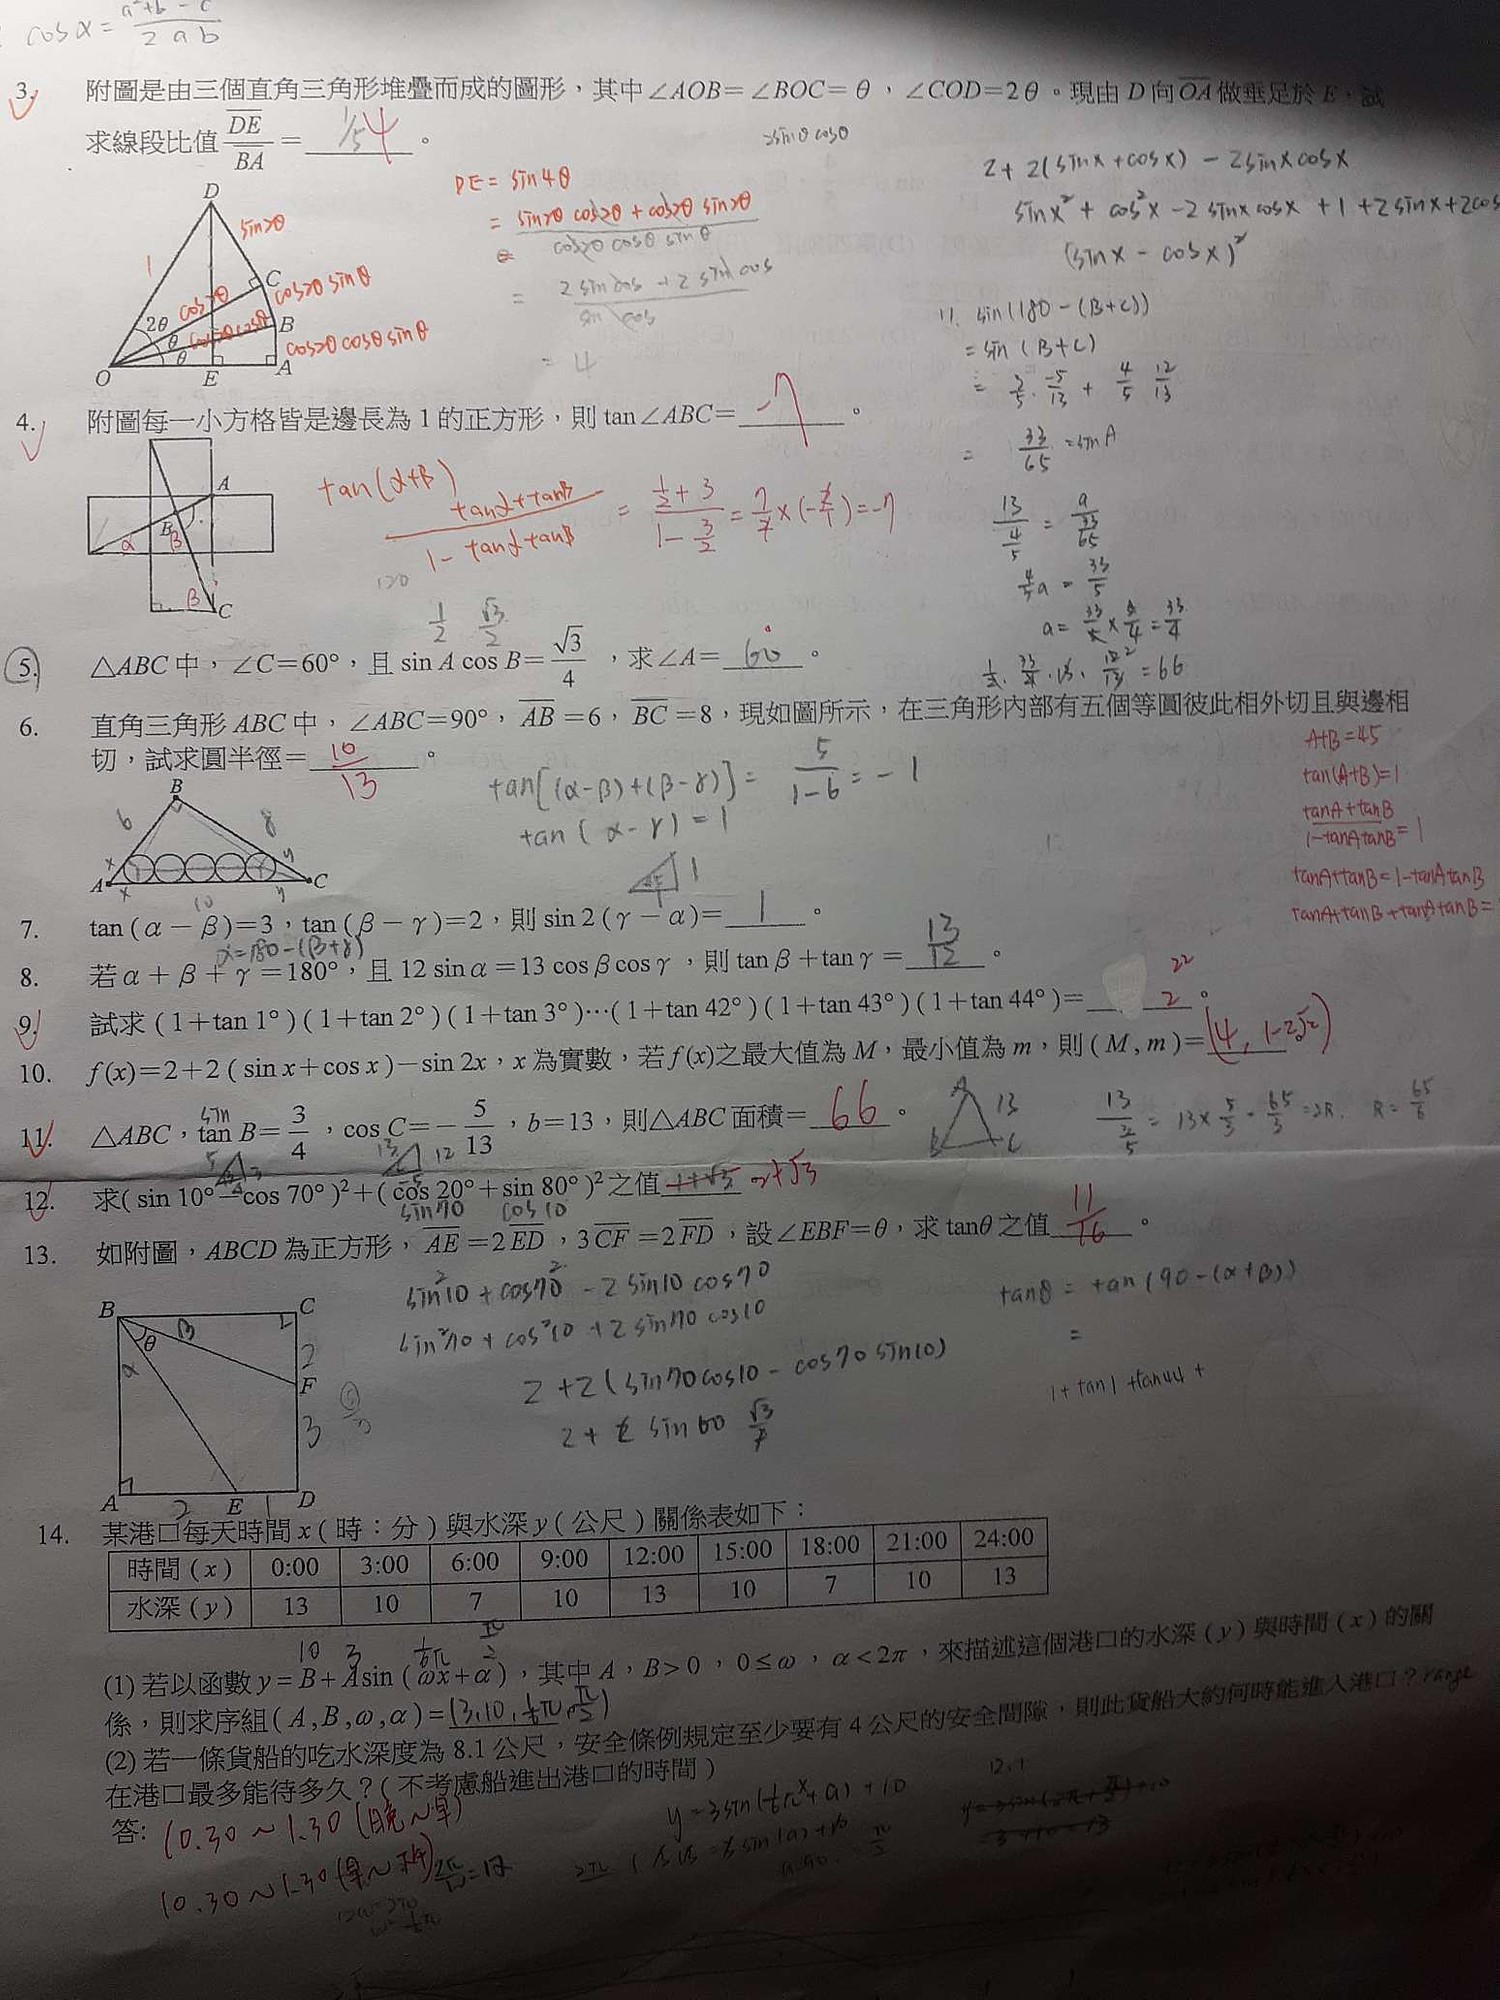 cos x = a²+b²-c / 2ab
3. 附圖是由三個直角三角形堆疊而成的圖形，其中∠AOB=∠BOC=θ，∠COD=2θ。現由D向OA做垂足於E，試
求線段比值 DE/BA = 1/5 4 。
2sinθcosθ
DE = sin4θ
= sin2θ cos2θ + cos2θ sin2θ / cos2θ cosθ sinθ
= 2 sin cos + 2 sin cos / sin cos
= 4
D
sin2θ
1
C
cos2θ
cos2θ sinθ
2θ
B
θ
cos2θ cosθ
cos2θ cosθ sinθ
θ
O
E
A
2 + 2(sinx+cosx) - 2sinx cosx
sinx² + cos²x - 2 sinx cosx + 1 + 2sinx + 2cos
(sinx - cosx)²
11. sin(180-(B+C))
= sin (B+C)
= 3/5 · -5/13 + 4/5 12/13
= 33/65 = sin A
13 / 4/5 = a / 33/65
4/5 a = 33/5
a = 33/5 × 5/4 = 33/4
1/2 · 33/4 · 13 · 12/13 = 66
4. 附圖每一小方格皆是邊長為1的正方形，則tan∠ABC= -7 。
A
B
α
β
β
C
tan(α+β)
tanα+tanβ / 1-tanαtanβ = 1/2+3 / 1-3/2 = 7/2 × (-2/1) = -7
120
1/2 √3/2
5. △ABC中，∠C=60°，且sin A cos B= √3/4 ，求∠A= 60° 。
6. 直角三角形ABC中，∠ABC=90°，AB=6，BC=8，現如圖所示，在三角形內部有五個等圓彼此相外切且與邊相
切，試求圓半徑= 10/13 。
B
6
8
x
y
A
x
y
C
10
tan[(α-β)+(β-γ)] = 5 / 1-6 = -1
tan ( α-γ ) = 1
1
45
1
A+B=45
tan(A+B)=1
tanA+tanB / 1-tanAtanB = 1
tanA+tanB=1-tanAtanB
tanA+tanB+tanAtanB=
7. tan(α-β)=3，tan(β-γ)=2，則sin 2(γ-α)= 1 。
α=180-(β+γ)
8. 若α+β+γ=180°，且12 sinα=13 cosβcosγ，則tanβ+tanγ= 13/12 。
9. 試求(1+tan 1°)(1+tan 2°)(1+tan 3°)⋯(1+tan 42°)(1+tan 43°)(1+tan 44°)= 2²² 。
10. f(x)=2+2(sin x+cos x)-sin 2x，x為實數，若f(x)之最大值為M，最小值為m，則(M,m)= (4, 1-2√2)
sin
11. △ABC，tan B= 3/4 ，cos C=- 5/13 ，b=13，則△ABC面積= 66 。
5 3 4
13 12 5
A
13
B
C
13 / 3/5 = 13 × 5/3 = 65/3 = 2R. R = 65/6
12. 求(sin 10°-cos 70°)²+(cos 20°+sin 80°)²之值 2+√3
sin70 cos10
13. 如附圖，ABCD為正方形，AE=2ED，3CF=2FD，設∠EBF=θ，求tanθ之值 11/16 。
B
C
β
θ
α
2
F
3
A
2
E
1
D
sin²10 + cos70² - 2 sin10 cos70
sin²70 + cos²10 + 2 sin70 cos10
2 + 2(sin70cos10 - cos70 sin10)
2 + 2 sin60 √3/2
tanθ = tan(90-(α+β))
=
1 + tan1 + tan44 +
14. 某港口每天時間x(時：分)與水深y(公尺)關係表如下：
時間(x) 0:00 3:00 6:00 9:00 12:00 15:00 18:00 21:00 24:00
水深(y) 13 10 7 10 13 10 7 10 13
10 3 1/6π π/2
(1)若以函數y=B+Asin(ωx+α)，其中A，B>0，0≤ω，α<2π，來描述這個港口的水深(y)與時間(x)的關
係，則求序組(A,B,ω,α)= (3,10,1/6π,π/2)
(2)若一條貨船的吃水深度為8.1公尺，安全條例規定至少要有4公尺的安全間隙，則此貨船大約何時能進入港口？range
在港口最多能待多久？(不考慮船進出港口的時間)
答: 10.30～1.30(晚～早)
10.30～1.30
2π/ω=12
y=3sin(1/6πx+α)+10
12.1